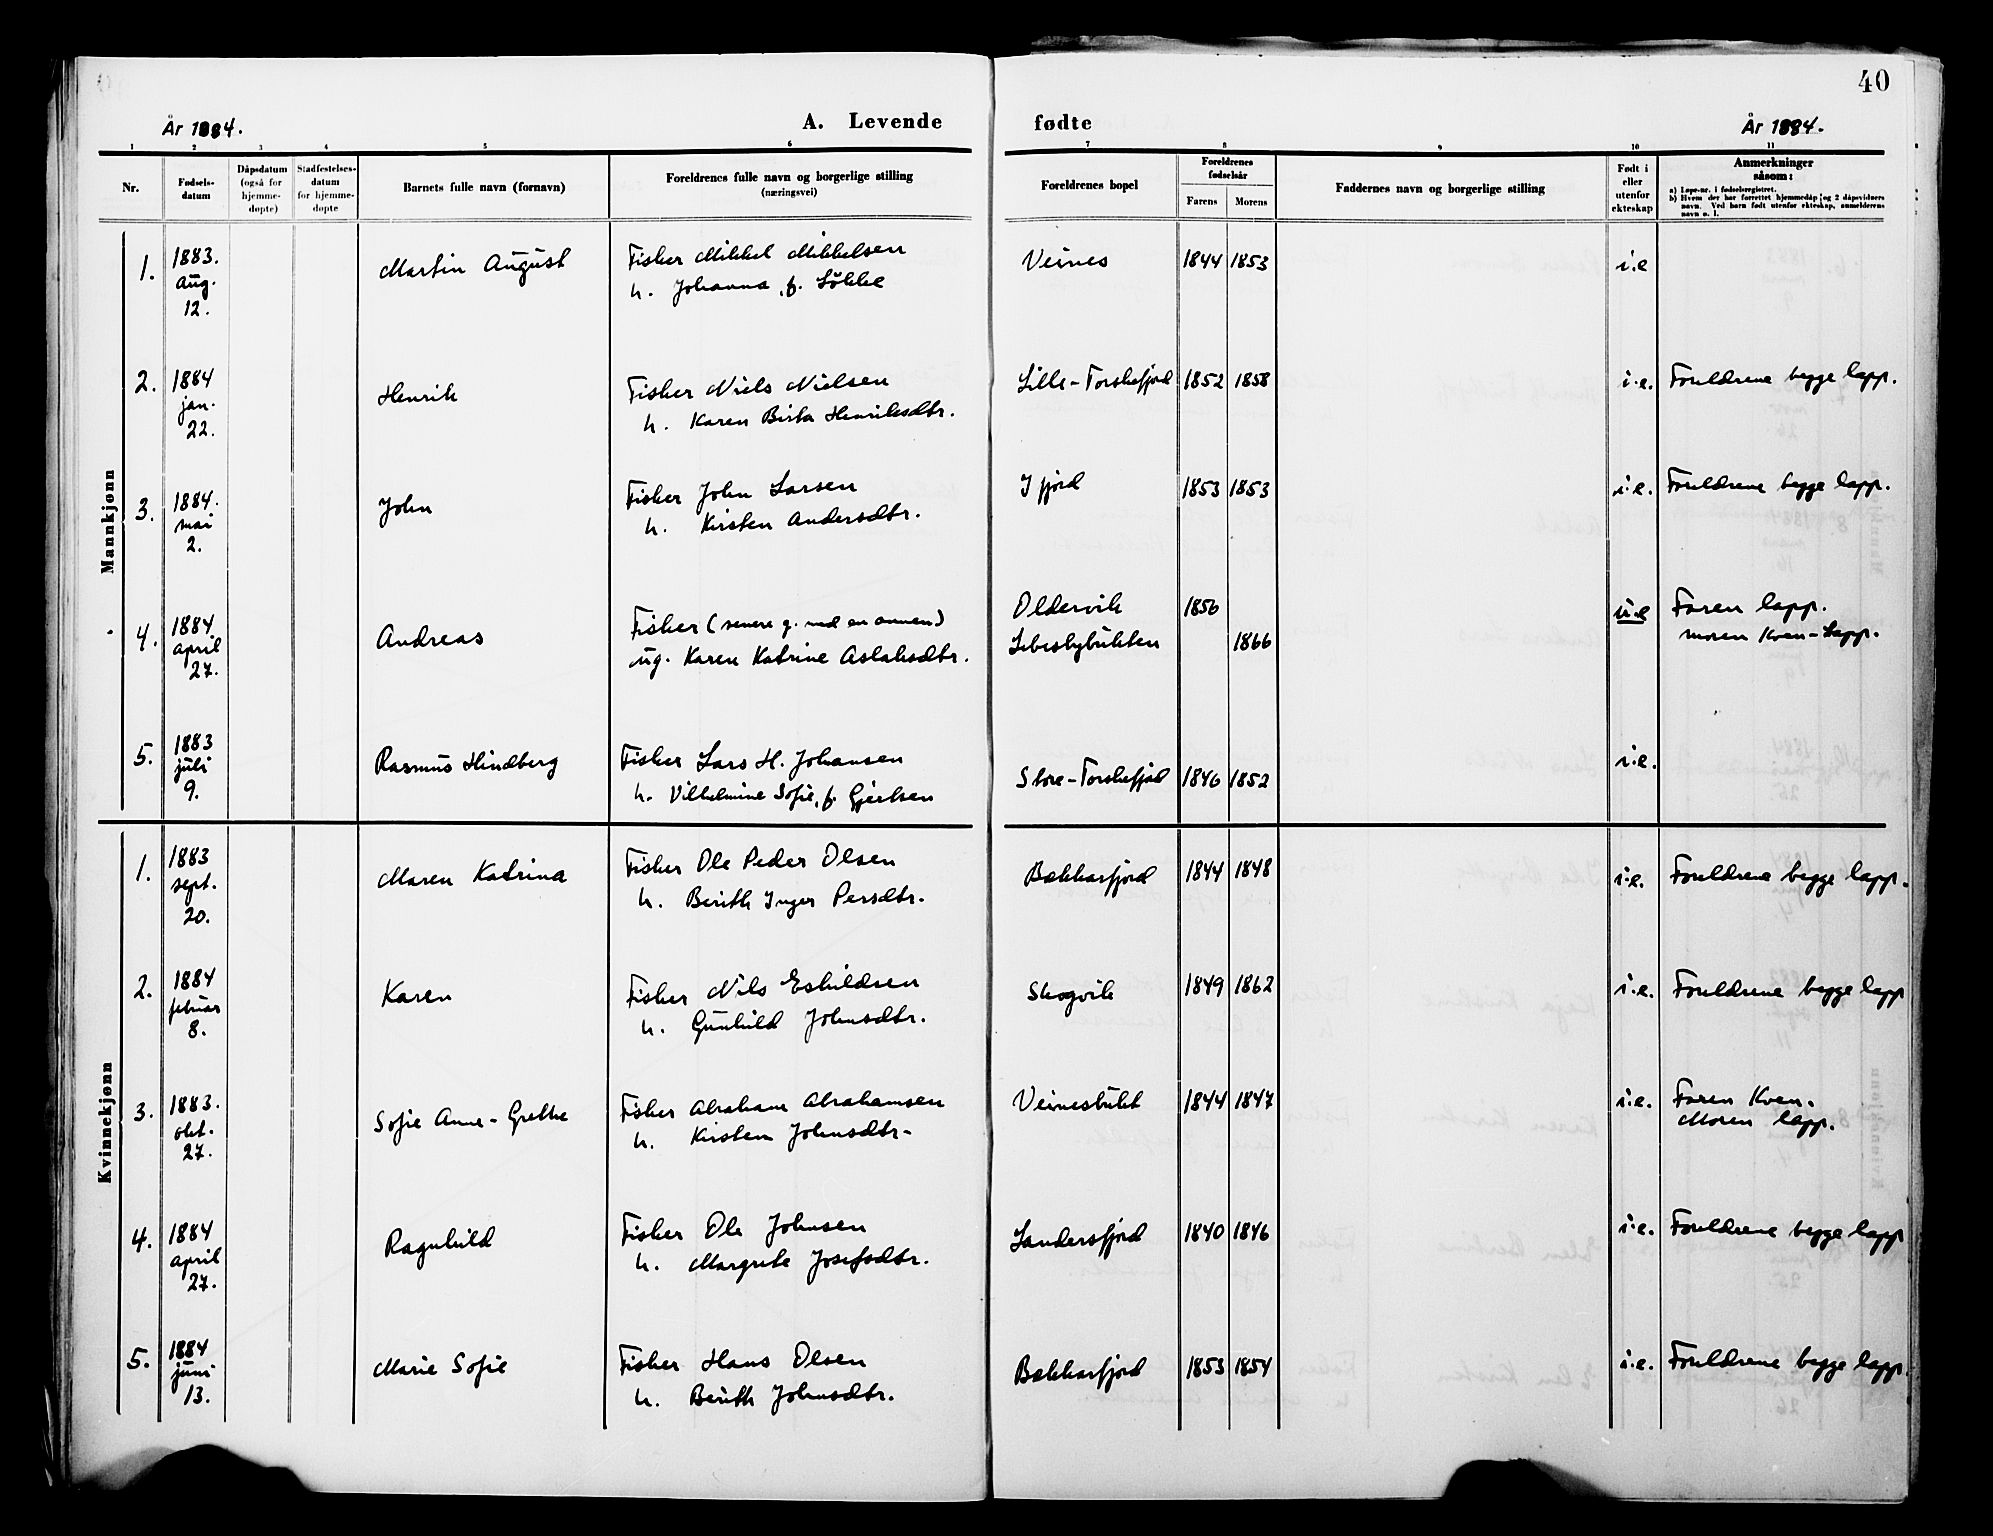 40
År 1884.
A. Levende fødte
År 1884.
1 2 3 4 5 6 7 8 9 10 11
Nr.
Fødsels-
datum
Dåpsdatum
(også for
hjemme-
døpte)
Stadfestelses-
datum
for hjemme-
døpte
Barnets fulle navn (fornavn)
Foreldrenes fulle navn og borgerlige stilling
(næringsvei)
Foreldrenes bopel
Foreldrenes
fødselsår
Farens Morens
Faddernes navn og borgerlige stilling
Født i
eller
utenfor
ekteskap
Anmerkninger
såsom:
a) Løpe-nr. i fødselsregistret.
b) Hvem der har forrettet hjemmedåp og 2 dåpsvidners
navn. Ved barn født utenfor ekteskap, anmelderens
navn o. l.
Mannkjønn
1. 1883. Aug. 12. Martin August Fisker Mikkel Mikkelsen Veines 1844 1853 i.e
h. Johanna, f. Løkke
2. 1884 jan. 22. Henrik Fisker Niels Nielsen Lille-Torskefjord 1852 1858 i.e. Foreldrene begge lapp.
h. Karen Birta Henriksdtr.
3. 1884. mai 2. John Fisker John Larsen Ifjord 1853 1853 i.e. Foreldrene begge lapp.
h. Kirsten Andersdtr.
4. 1884 april 27. Andreas Fisker (senere g. med en annen) Oldervik 1856 u.e Faren lapp.
ug. Karen Katrine Aslaksdtr. Lebesbybukten 1866 moren Kven-Lapp.
5. 1883 juli 9. Rasmus Hindberg Fisker Lars H. Johansen Store-Torskefjord 1846 1852 i.e.
h. Vilhelmine Sofie, f. Gjertsen
Kvinnekjønn
1. 1883 sept. 20. Maren Katrina Fisker Ole Peder Olsen Bekkarfjord 1844 1848 i.e. Foreldrene begge lapp.
h. Berith Inger Persdtr.
2. 1884 febuar 8. Karen Fisker Nils Eskildsen Skogvik 1849 1862 i.e. Foreldrene begge lapp
h. Gunhild Johnsdtr.
3. 1883. okt. 27. Sofie Anne-Grethe Fisker Abraham Abrahamsen Veinesbukt 1844 1847 i.e. Faren Kven.
h. Kirsten Johnsdtr- Moren lapp.
4. 1884 april 27. Ragnhild Fisker Ole Johnsen Landersfjord 1840 1846 i.e. Foreldrene begge lapp
h. Margrete Josefsdtr.
5. 1884 juni 13. Marie Sofie Fisker Hans Olsen Bekkarfjord 1853 1854 i.e. Foreldrene begge lapp.
h. Berith Johnsdtr.